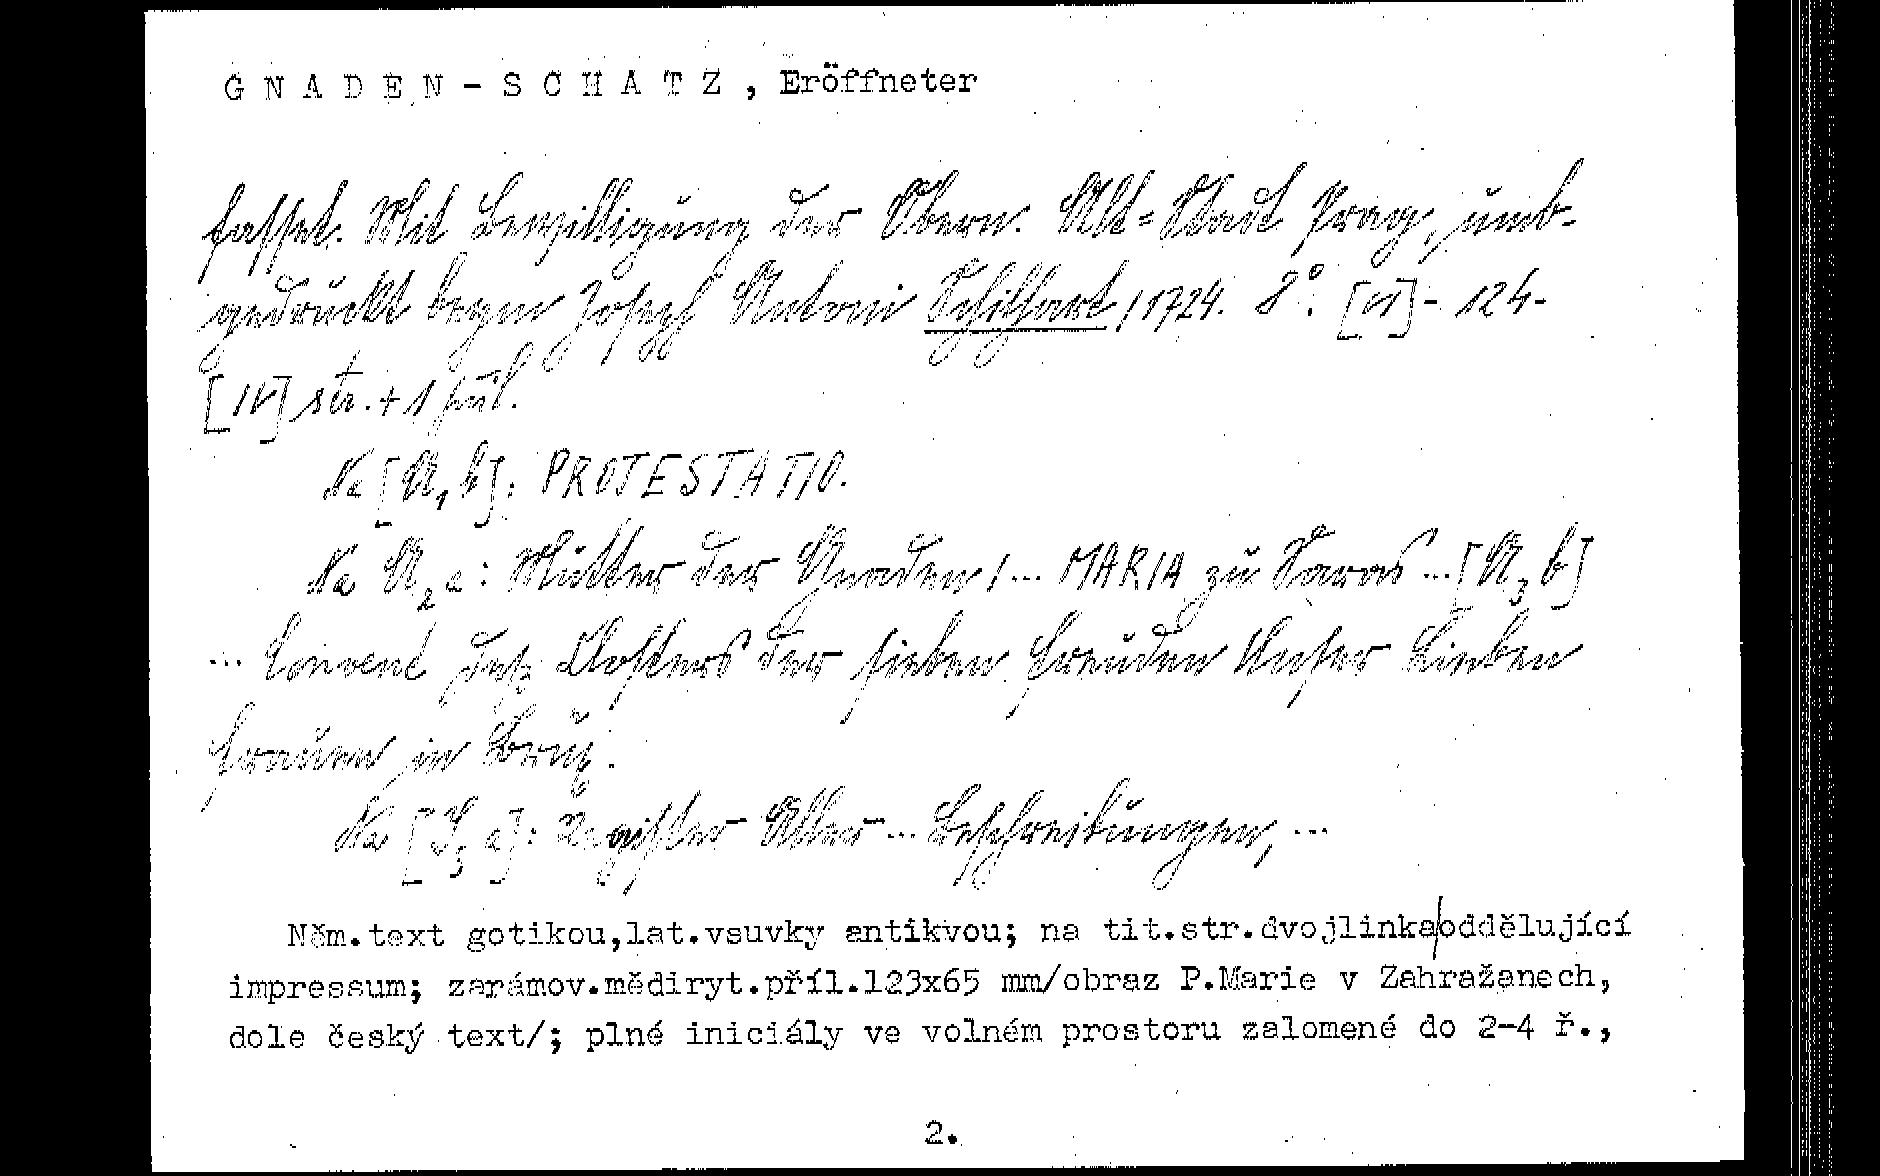 GNADEN-SCHATZ, Eröffneter
fasset. Mit Bewilligung der Obern. Alt=Stadt Prag, umb-
gedruckt beym Joseph Antoni Schilhart, 1724. 8°. [VI]-124-
[IV] str.+1 příl.
Na [A₁b]: PROTESTATIO.
Na A₂a: Mutter der Gnaden, ... MARIA zu Saras ... [A₃b]
... Convent deß Closters der sieben Freuden Unser Lieben
Frauen in Brüx.
Na [I₃a]: Register Aller ... Beschreibungen, ...
Něm.text gotikou,lat.vsuvky antikvou; na tit.str.dvojlinka/oddělující
impressum; zarámov.mědiryt.příl.123x65 mm/obraz P.Marie v Zahražanech,
dole český text/; plné iniciály ve volném prostoru zalomené do 2-4 ř.,
2.